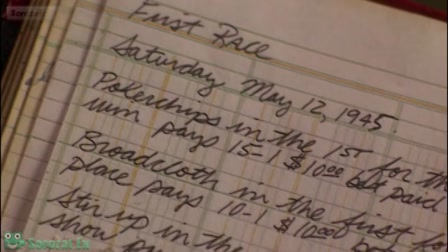 First Race
Saturday May 12, 1945.
Pokerchips in the 1st for the
win pays 15-1 $10.00 bet paid
Broadcloth in the first
place pays 10-1 $10.00 bet
Stir up in the
show